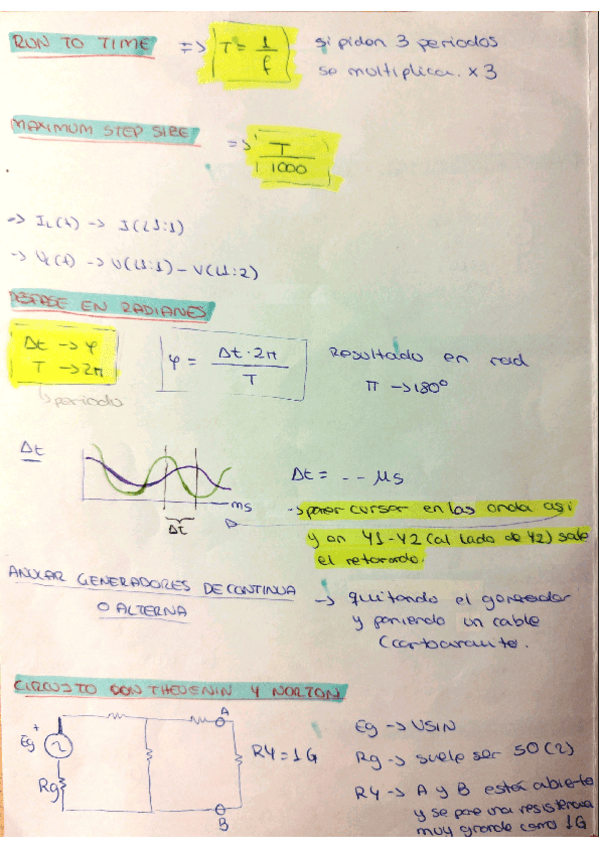 RUN TO TIME => T = 1/f si piden 3 periodos
se multiplica x 3
MAXIMUM STEP SIZE => T/1000
-> IL(t) -> I(L1:1)
-> VL(t) -> V(L1:1) - V(L1:2)
DESFASE EN RADIANES
Δt -> φ
T -> 2π
↳ periodo
φ = Δt·2π/T
Resultado en rad
π -> 180º
Δt
ms
Δt
Δt = - - μs
-> poner cursor en las onda asi
y en Y1-Y2 (al lado de Y2) sale
el retardo.
ANULAR GENERADORES DE CONTINUA
O ALTERNA
-> quitando el generador
y poniendo un cable
(cortocircuito.
CIRCUITO CON THEVENIN Y NORTON
A
+
Eg
Rg
B
R4 = 1G
Eg -> VSIN
Rg -> suele ser 50 (Ω)
R4 -> A y B estan abierto
y se pone una resistencia
muy grande como 1G